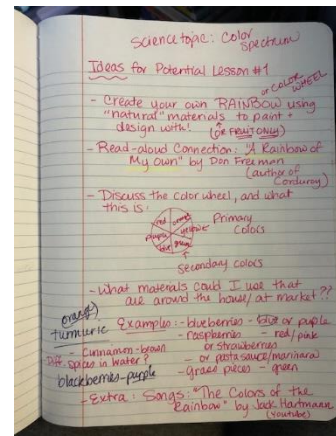 Science topic: Color
Spectrum
Ideas for Potential Lesson #1
or COLOR
WHEEL
- Create your own RAINBOW using
"natural" materials to paint +
design with! (OR FRUIT ONLY)
- Read-aloud Connection: "A Rainbow of
My Own" by Don Freeman
(author of
Corduroy)
- Discuss the color wheel, and what
this is:
red orange
purple yellow
blue green
Primary
Colors
Secondary colors
- What materials could I use that
are around the house/at market??
(orange)
turmeric
Examples: - blueberries - blue or purple
- raspberries - red/pink
or strawberries
- cinnamon - brown
Diff. spices in water?
- or pasta sauce/marinara
blackberries - purple
- Grass pieces - green
- Extra: Songs: "The Colors of the
Rainbow" by Jack Hartmann
(Youtube)